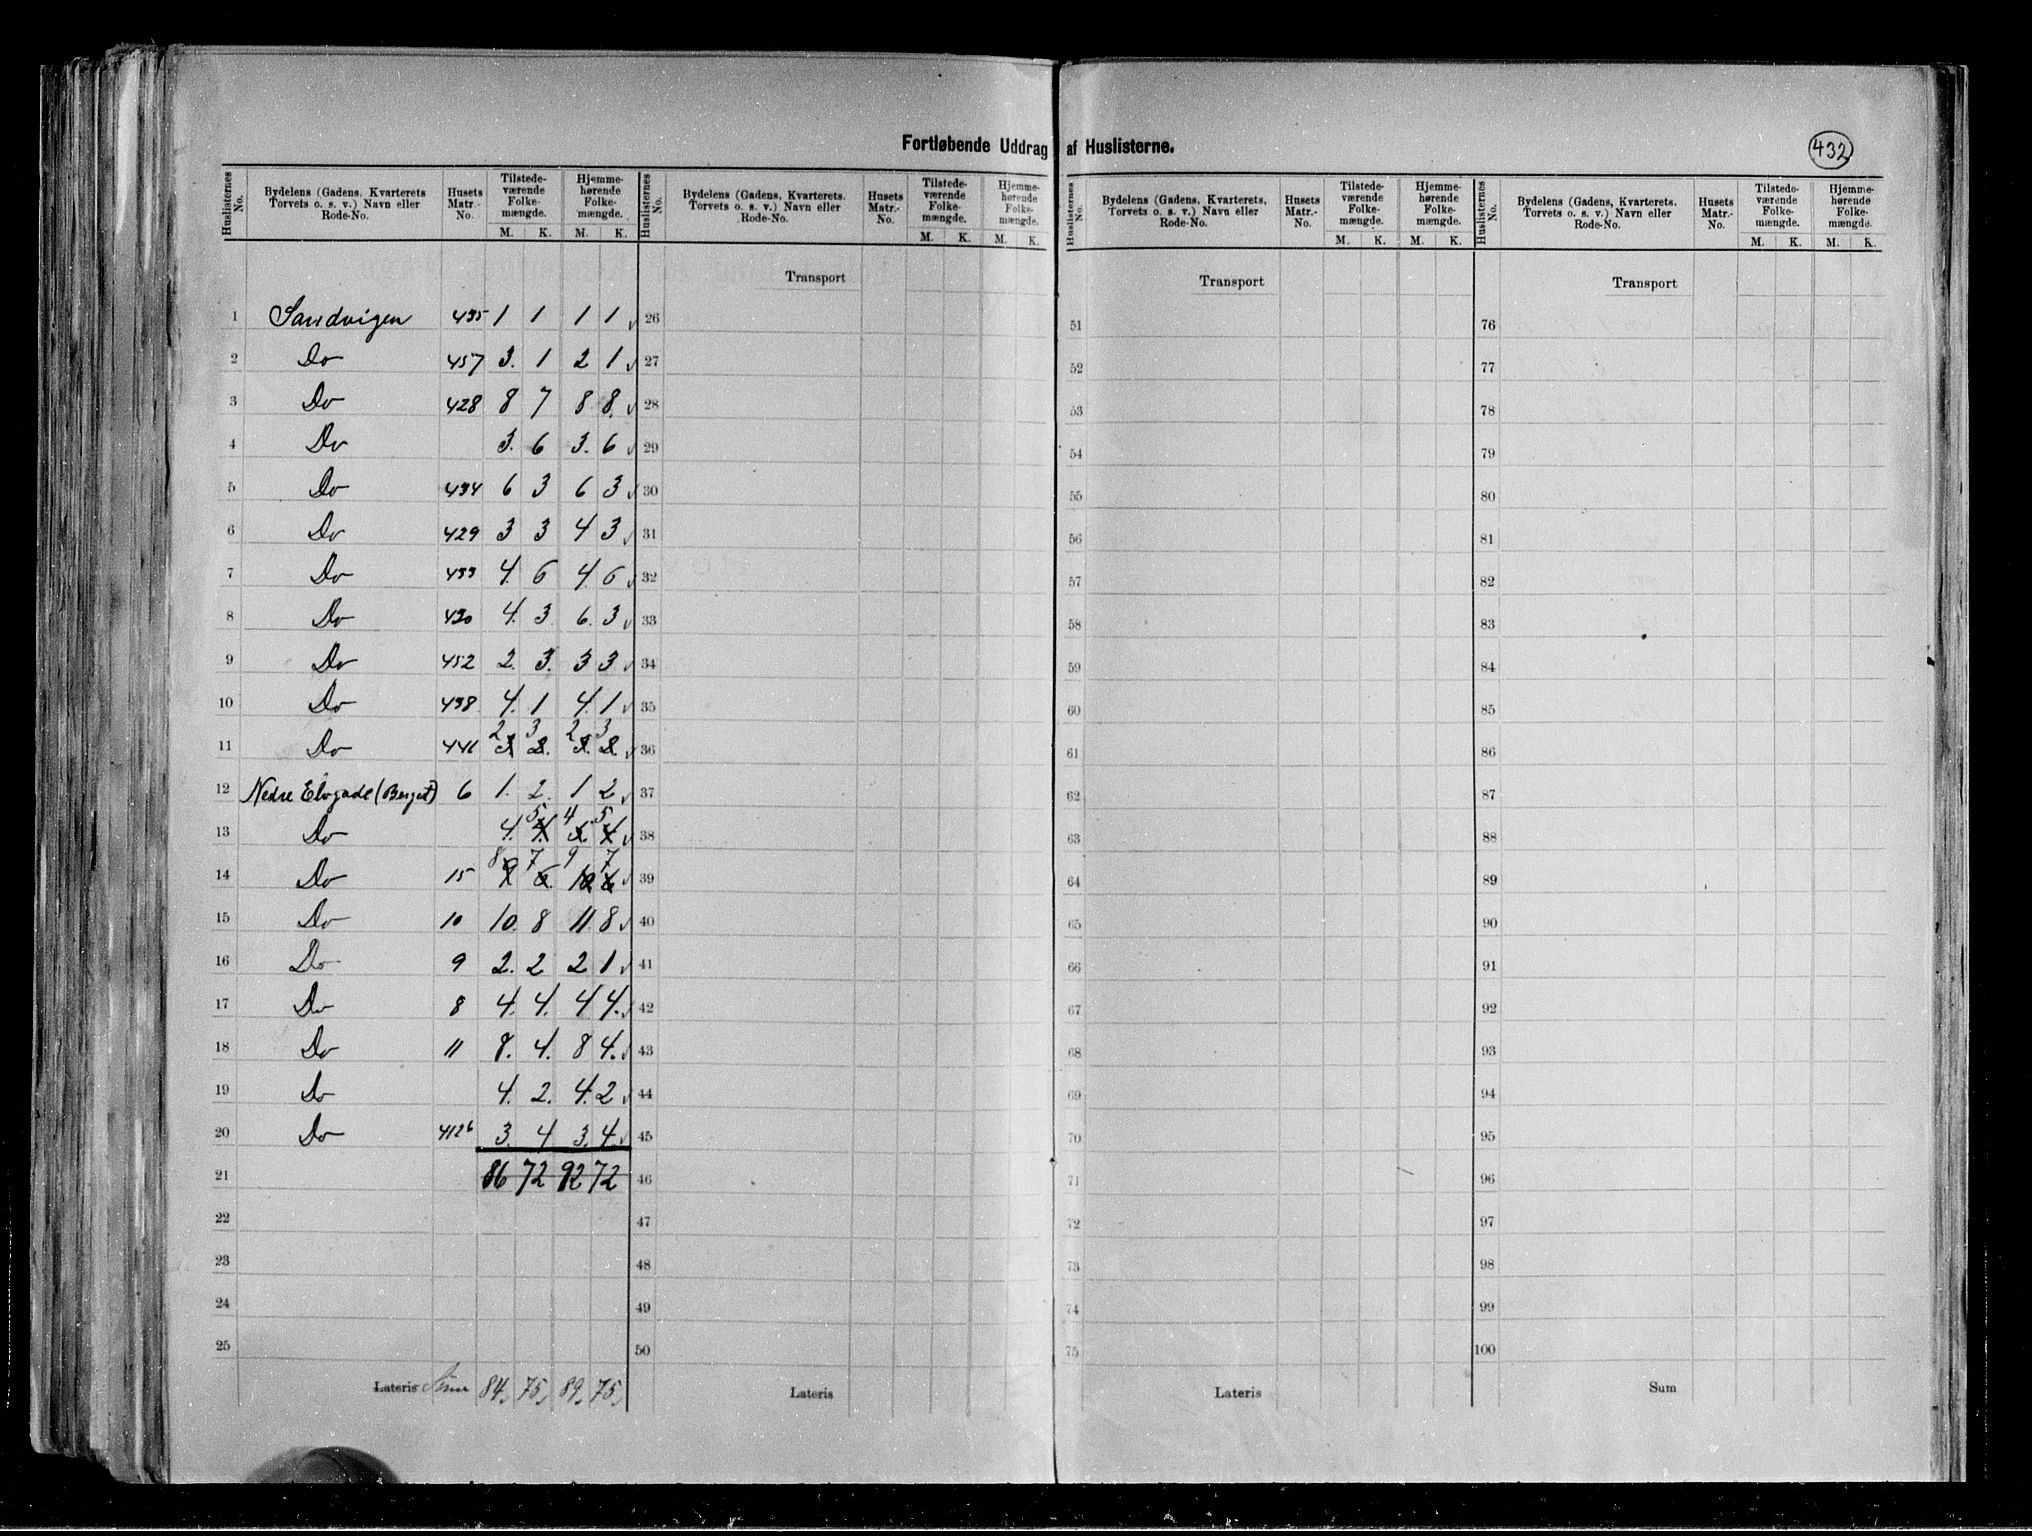 Fortløbende Uddrag af Huslisterne.
432
Huslisternes No. Bydelens (Gadens, Kvarterets Torvets o. s. v.) Navn eller Rode-No. Husets Matr.-No. Tilstede-værende Folke-mængde. M. K. Hjemme-hørende Folke-mængde. M. K.
Huslisternes No. Bydelens (Gadens, Kvarterets. Torvets o. s. v.) Navn eller Rode-No. Husets Matr.-No. Tilstede-værende Folke-mængde. M. K. Hjemme-hørende Folke-mængde. M. K.
Huslisternes No. Bydelens (Gadens, Kvarterets, Torvets o. s. v.) Navn eller Rode-No. Husets Matr.-No. Tilstede-værende Folke-mængde. M. K. Hjemme-hørende Folke-mængde. M. K.
Huslisternes No. Bydelens (Gadens, Kvarterets. Torvets o. s. v.) Navn eller Rode-No. Husets Matr.-No. Tilstede-værende Folke-mængde. M. K. Hjemme-hørende Folke-mængde. M. K.
Transport Transport Transport
1 Sandvigen 435 1 1 1 1 26 51 76
2 Do 457 3. 1 2 1 27 52 77
3 Do 428 8 7 8 8. 28 53 78
4 Do 3. 6 3. 6 29 54 79
5 Do 434 6 3 6 3 30 55 80
6 Do 429 3 3 4 3 31 56 81
7 Do 433 4. 6 4. 6 32 57 82
8 Do 430 4. 3 6. 3 33 58 83
9 Do 452 2. 3. 3 3 34 59 84
10 Do 438 4. 1 4. 1 35 60 85
2 3 2 3
11 Do 446 3 2. 3. 2. 36 61 86
12 Nedre Elvegade (Berget) 6 1. 2. 1 2 37 62 87
5 4 5
13 Do 4. 4. 5 4 38 63 88
8 7 9 7
14 Do 15 9 6. 10 6 39 64 89
15 Do 10 10. 8 11 8 40 65 90
16 Do 9 2. 2 2 1 41 66 91
17 Do 8 4. 4. 4 4. 42 67 92
18 Do 11 8. 4. 8 4. 43 68 93
19 Do 4. 2. 4. 2 44 69 94
20 Do 412 b 3. 4 3. 4. 45 70 95
21 86 72 92 72 46 71 96
22 47 72 97
23 48 73 98
24 49 74 99
25 50 75 100
Lateris Sum 84, 75, 89, 75, Lateris Lateris Sum